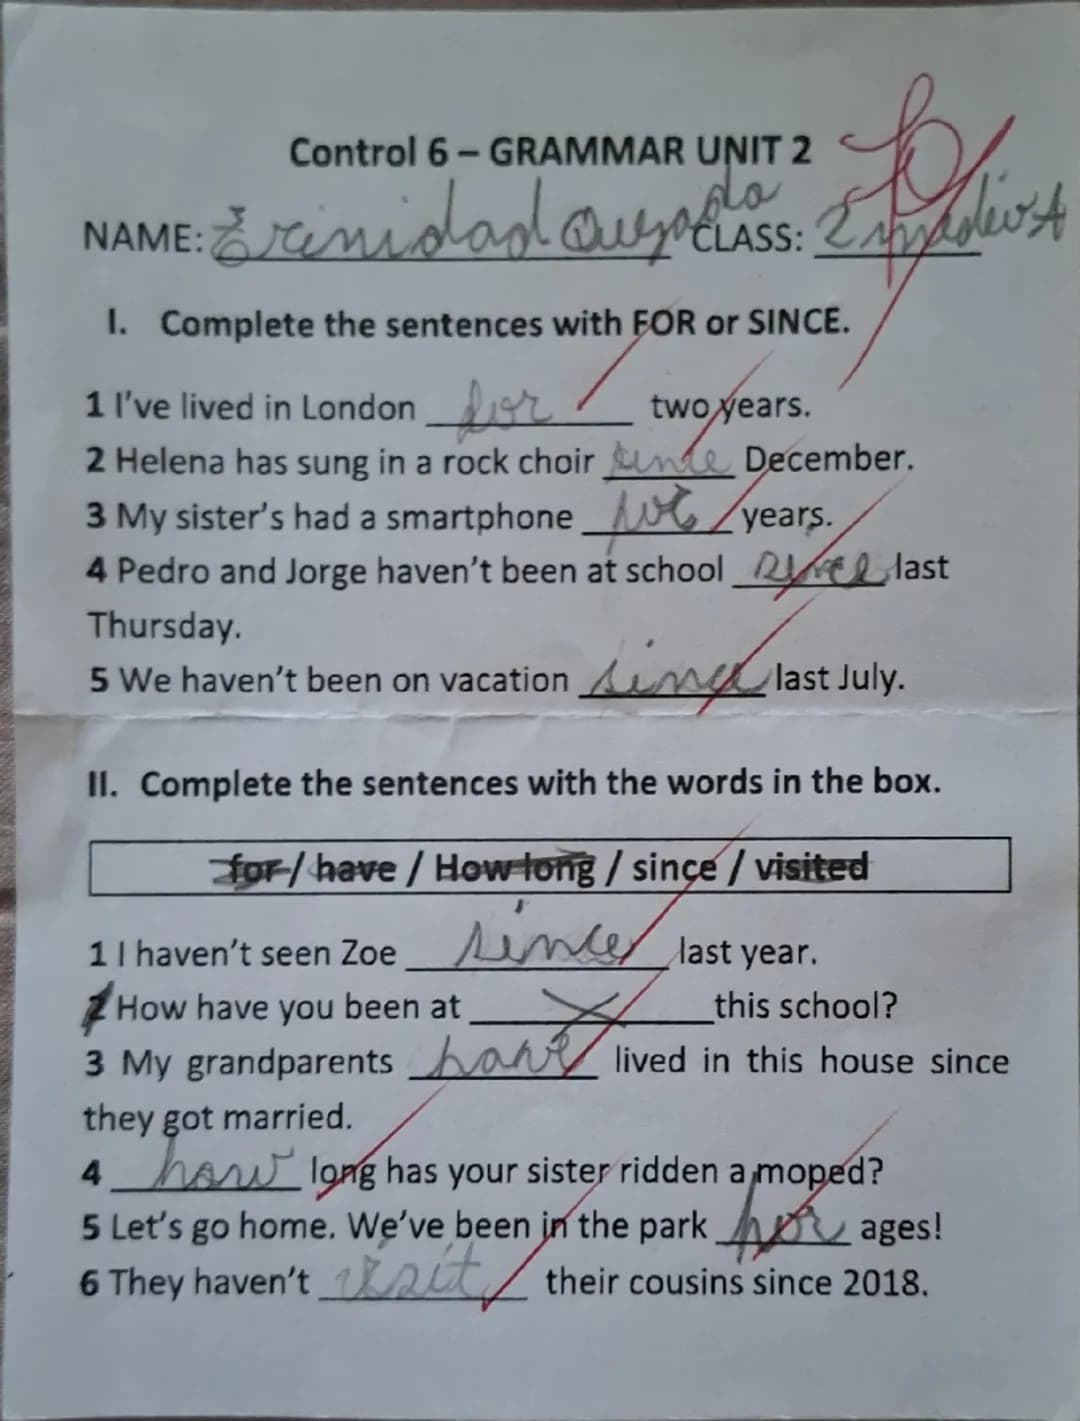 Control 6 – GRAMMAR UNIT 2
NAME: Trinidad Quezada CLASS: 2 medio A
I. Complete the sentences with FOR or SINCE.
1 I've lived in London for two years.
2 Helena has sung in a rock choir since December.
3 My sister's had a smartphone for years.
4 Pedro and Jorge haven't been at school since last
Thursday.
5 We haven't been on vacation since last July.
II. Complete the sentences with the words in the box.
for / have / How long / since / visited
1 I haven't seen Zoe since last year.
2 How have you been at X this school?
3 My grandparents have lived in this house since
they got married.
4 how long has your sister ridden a moped?
5 Let's go home. We've been in the park for ages!
6 They haven't visit their cousins since 2018.